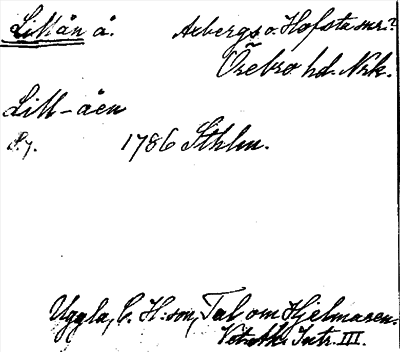 Lillån å. Axbergs o. Hofsta snr.?
Örebro hd. Nrk.
Lill-åen
S. 7. 1786 Sthlm.
Uggla, C. H:son, Tal om Hjelmaren.
Vet. Intr. III.